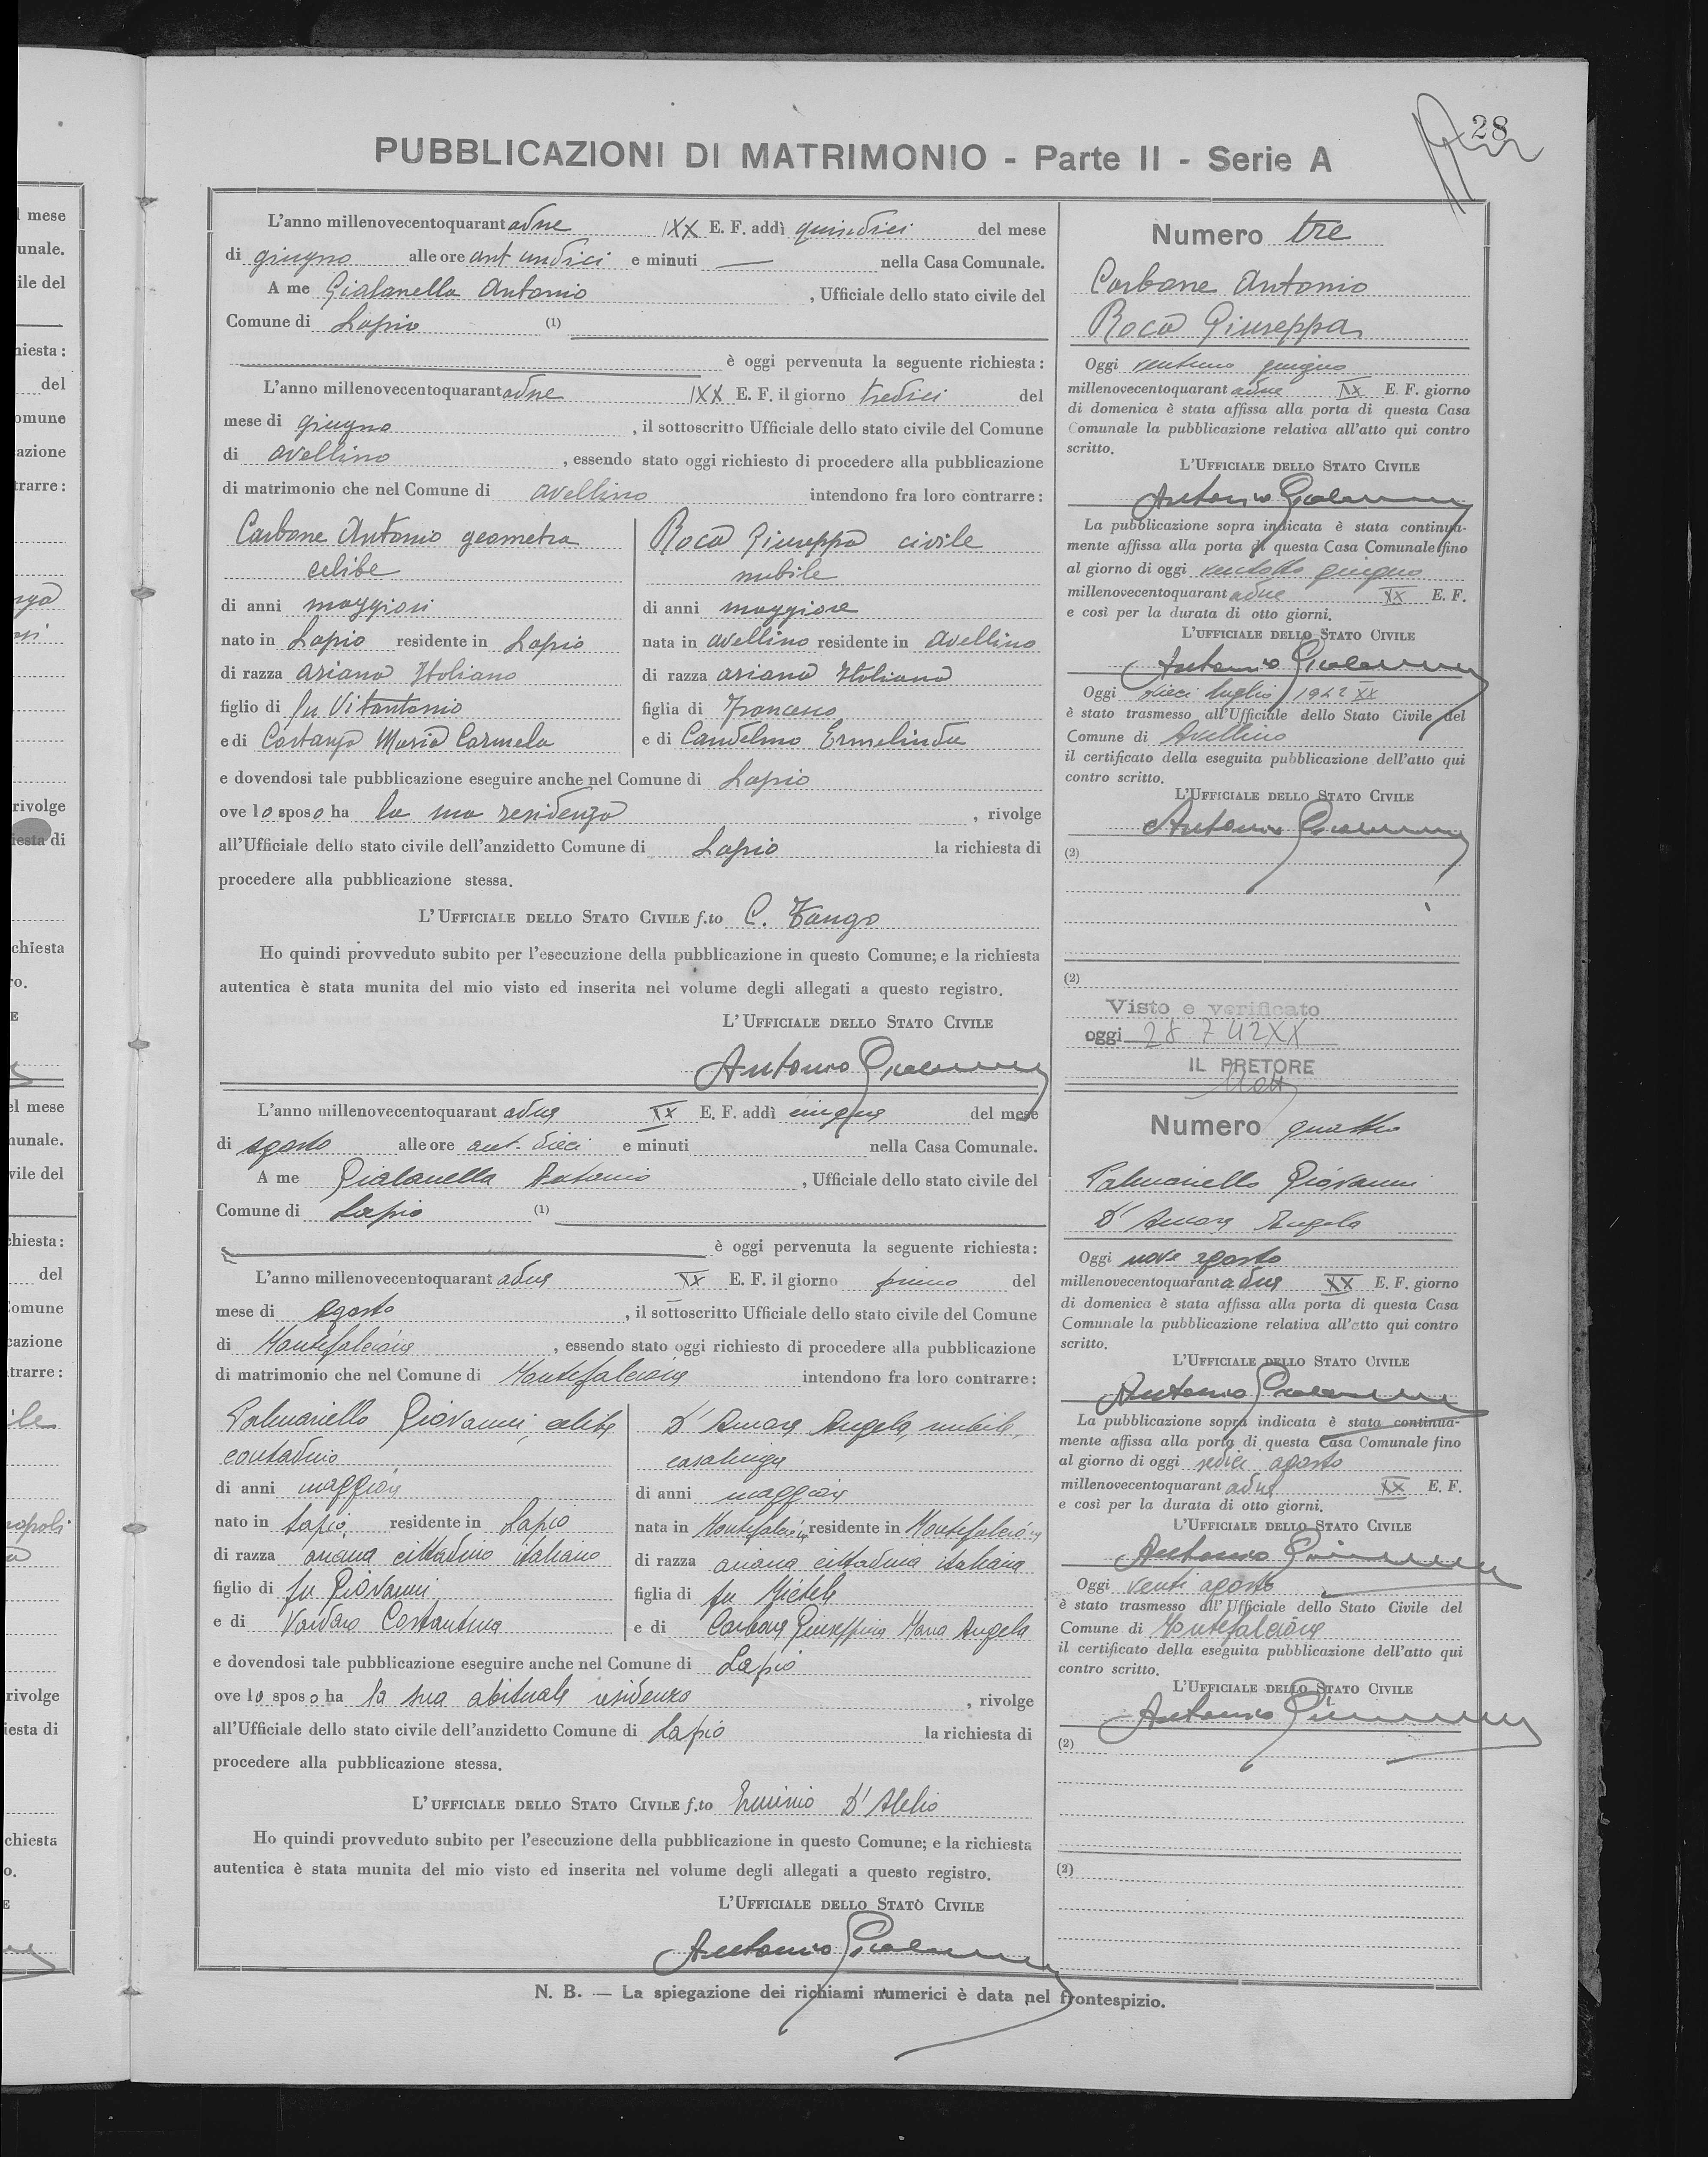 28
PUBBLICAZIONI DI MATRIMONIO - Parte II - Serie A
L'anno millenovecentoquarantadue XX E. F. addì quindici del mese
di giugno alle ore ant undici e minuti — nella Casa Comunale.
A me Gialanella Antonio, Ufficiale dello stato civile del
Comune di Lapio (1)
è oggi pervenuta la seguente richiesta:
L'anno millenovecentoquarantadue XX E. F. il giorno tredici del
mese di giugno, il sottoscritto Ufficiale dello stato civile del Comune
di Avellino, essendo stato oggi richiesto di procedere alla pubblicazione
di matrimonio che nel Comune di Avellino intendono fra loro contrarre:
Carbone Antonio geometra
celibe
di anni maggiori
nato in Lapio residente in Lapio
di razza ariana Italiano
figlio di fu Vitantonio
e di Costanza Maria Carmela
Roca Giuseppa civile
nubile
di anni maggiore
nata in Avellino residente in Avellino
di razza ariana Italiana
figlia di Francesco
e di Candelmo Ermelinda
e dovendosi tale pubblicazione eseguire anche nel Comune di Lapio
ove lo sposo ha la sua residenza, rivolge
all'Ufficiale dello stato civile dell'anzidetto Comune di Lapio la richiesta di
procedere alla pubblicazione stessa.
L'UFFICIALE DELLO STATO CIVILE f.to C. Tango
Ho quindi provveduto subito per l'esecuzione della pubblicazione in questo Comune; e la richiesta
autentica è stata munita del mio visto ed inserita nel volume degli allegati a questo registro.
L'UFFICIALE DELLO STATO CIVILE
Antonio Gialanella
Numero tre
Carbone Antonio
Roca Giuseppa
Oggi ventuno giugno
millenovecentoquarantadue XX E. F. giorno
di domenica è stata affissa alla porta di questa Casa
Comunale la pubblicazione relativa all'atto qui contro
scritto.
L'UFFICIALE DELLO STATO CIVILE
Antonio Gialanella
La pubblicazione sopra indicata è stata continua-
mente affissa alla porta di questa Casa Comunale fino
al giorno di oggi ventotto giugno
millenovecentoquarantadue XX E. F.
e così per la durata di otto giorni.
L'UFFICIALE DELLO STATO CIVILE
Antonio Gialanella
Oggi dieci luglio 1942 XX
è stato trasmesso all'Ufficiale dello Stato Civile del
Comune di Avellino
il certificato della eseguita pubblicazione dell'atto qui
contro scritto.
L'UFFICIALE DELLO STATO CIVILE
Antonio Gialanella
(2)
(2)
Visto e verificato
oggi 28 7 42 XX
IL PRETORE
L'anno millenovecentoquarantadue XX E. F. addì cinque del mese
di agosto alle ore ant. dieci e minuti nella Casa Comunale.
A me Gialanella Antonio, Ufficiale dello stato civile del
Comune di Lapio (1)
è oggi pervenuta la seguente richiesta:
L'anno millenovecentoquarantadue XX E. F. il giorno primo del
mese di Agosto, il sottoscritto Ufficiale dello stato civile del Comune
di Montefalcione, essendo stato oggi richiesto di procedere alla pubblicazione
di matrimonio che nel Comune di Montefalcione intendono fra loro contrarre:
Palmariello Giovanni, celibe
contadino
di anni maggiore
nato in Lapio residente in Lapio
di razza ariana cittadino italiano
figlio di fu Giovanni
e di Vardaro Costantina
D'Amore Angela, nubile,
casalinga
di anni maggiore
nata in Montefalcione residente in Montefalcione
di razza ariana cittadina italiana
figlia di fu Michele
e di Carbone Giuseppina Maria Angela
e dovendosi tale pubblicazione eseguire anche nel Comune di Lapio
ove lo sposo ha la sua abituale residenza, rivolge
all'Ufficiale dello stato civile dell'anzidetto Comune di Lapio la richiesta di
procedere alla pubblicazione stessa.
L'UFFICIALE DELLO STATO CIVILE f.to Erminio D'Alelio
Ho quindi provveduto subito per l'esecuzione della pubblicazione in questo Comune; e la richiesta
autentica è stata munita del mio visto ed inserita nel volume degli allegati a questo registro.
L'UFFICIALE DELLO STATO CIVILE
Antonio Gialanella
Numero quattro
Palmariello Giovanni
D'Amore Angela
Oggi nove agosto
millenovecentoquarantadue XX E. F. giorno
di domenica è stata affissa alla porta di questa Casa
Comunale la pubblicazione relativa all'atto qui contro
scritto.
L'UFFICIALE DELLO STATO CIVILE
Antonio Gialanella
La pubblicazione sopra indicata è stata continua-
mente affissa alla porta di questa Casa Comunale fino
al giorno di oggi sedici agosto
millenovecentoquarantadue XX E. F.
e così per la durata di otto giorni.
L'UFFICIALE DELLO STATO CIVILE
Antonio Gialanella
Oggi venti agosto
è stato trasmesso all'Ufficiale dello Stato Civile del
Comune di Montefalcione
il certificato della eseguita pubblicazione dell'atto qui
contro scritto.
L'UFFICIALE DELLO STATO CIVILE
Antonio Gialanella
(2)
(2)
N. B. — La spiegazione dei richiami numerici è data nel frontespizio.